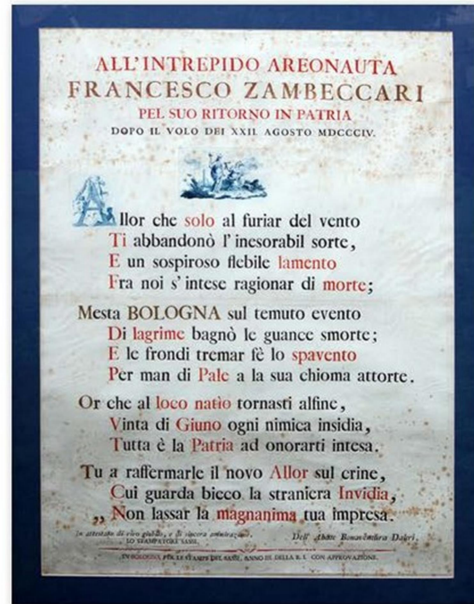 ALL'INTREPIDO AREONAUTA
FRANCESCO ZAMBECCARI
PEL SUO RITORNO IN PATRIA
DOPO IL VOLO DEI XXII. AGOSTO MDCCCIV.
Allor che solo al furiar del vento
Ti abbandonò l'inesorabil sorte,
E un sospiroso flebile lamento
Fra noi s'intese ragionar di morte;
Mesta BOLOGNA sul temuto evento
Di lagrime bagnò le guance smorte;
E le frondi tremar fè lo spavento
Per man di Pale a la sua chioma attorte.
Or che al loco natìo tornasti alfine,
Vinta di Giuno ogni nimica insidia,
Tutta è la Patria ad onorarti intesa.
Tu a raffermarle il novo Allor sul crine,
Cui guarda bieco la straniera Invidia,
„ Non lassar la magnanima tua impresa.
In attestato di vivo giubilo, e di sincera ammirazione
LO STAMPATORE SASSI.
Dell' Abate Bonaventura
IN BOLOGNA PER LE STAMPE DEL SASSI. ANNO III. DELLA R. I. CON APPROVAZIONE.